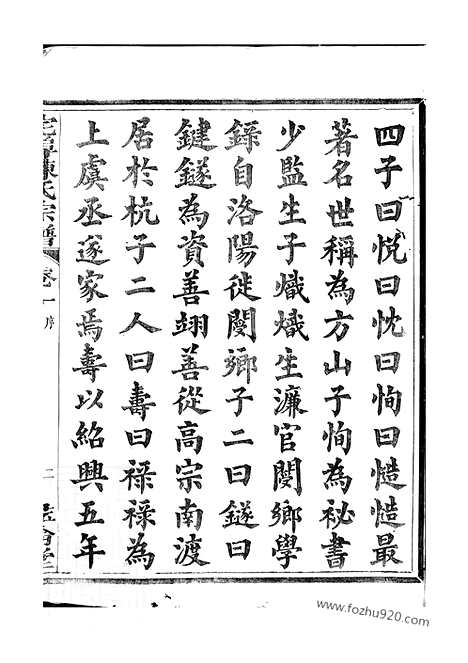 四子曰恱曰忱曰恂曰慥慥最
著名世稱為方山子恂為祕書
少監生子熾熾生濂官閿鄉學
錄自洛陽徙閿鄉子二曰鐩曰
鍵鐩為資善翊善從高宗南渡
居於杭子二人曰壽曰祿祿為
上虞丞遂家焉壽以紹興五年
陳氏宗譜 卷一 序 二
www.fozhu920.com